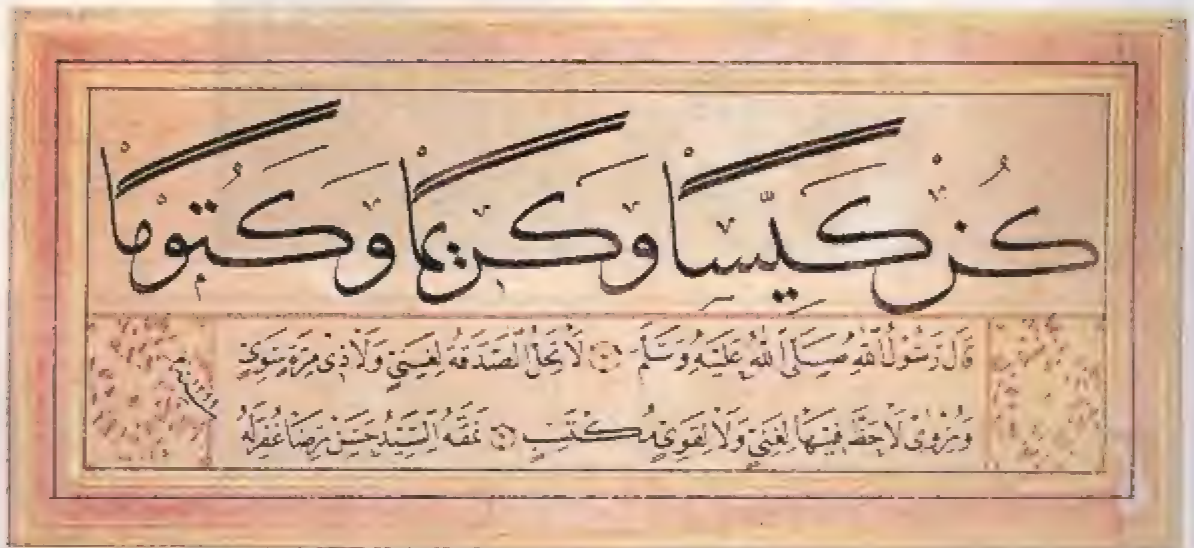 كُنْ كَيِّسًا وَكَرِيمًا وَكَتُومًا
قَالَ رَسُولُ اللّٰهِ صَلَّى اللّٰهُ عَلَيْهِ وَسَلَّمَ لَا تَحِلُّ الصَّدَقَةُ لِغَنِيٍّ وَلَا ذِي مِرَّةٍ سَوِيٍّ
وَيُرْوٰى لَا حَظَّ فِيهَا لِغَنِيٍّ وَلَا لِقَوِيٍّ مُكْتَسِبٍ نَمَقَهُ السَّيِّدُ حَسَنْ رِضَا غُفِرَلَهُ